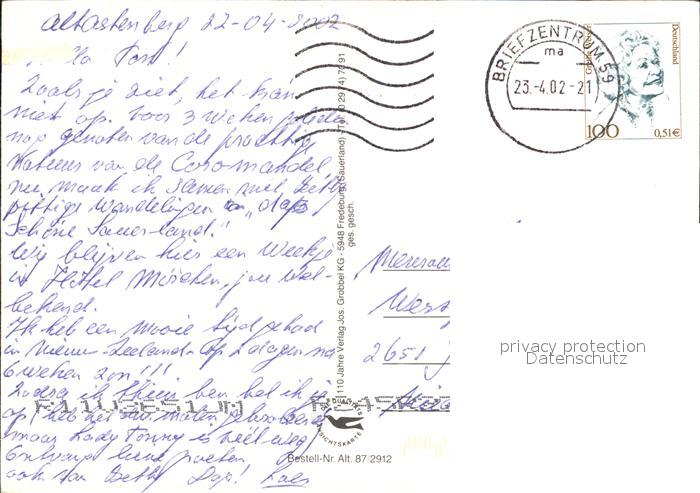 Altastenberg 22-04-2002
Ha Toss!
Zoals je ziet, het kan
niet op. Voor 3 weken
nog genoten van de prachtige
natuur van de Coromandel
nu maak ik samen met Betty
pittige wandelingen in "das
Schöne Sauerland"
Wij blijven hier een weekje
in Hotel Mörchen, jou wel-
bekend.
Ik heb een mooie tijd gehad
in Nieuw-Zeeland op 2 dagen na
6 weken zon!!!
Zodra ik thuis ben bel ik je
op, heb het
maar Lady Tonny is veel weg
Ontvang lieve groeten
ook van Betty Dag! Loes
110 Jahre Verlag Jos. Grobbel KG - 5948 Fredeburg (Sauerland) - Tel. (0 29 74) 70 91
ges. gesch.
BRIEFZENTRUM 59
ma
23.-4.02-21
Deutschland
100
0,51€
Mevrouw
2651
privacy protection
Datenschutz
QUALITÄTS
ANSICHTSKARTE
Bestell-Nr. Alt. 87 2912